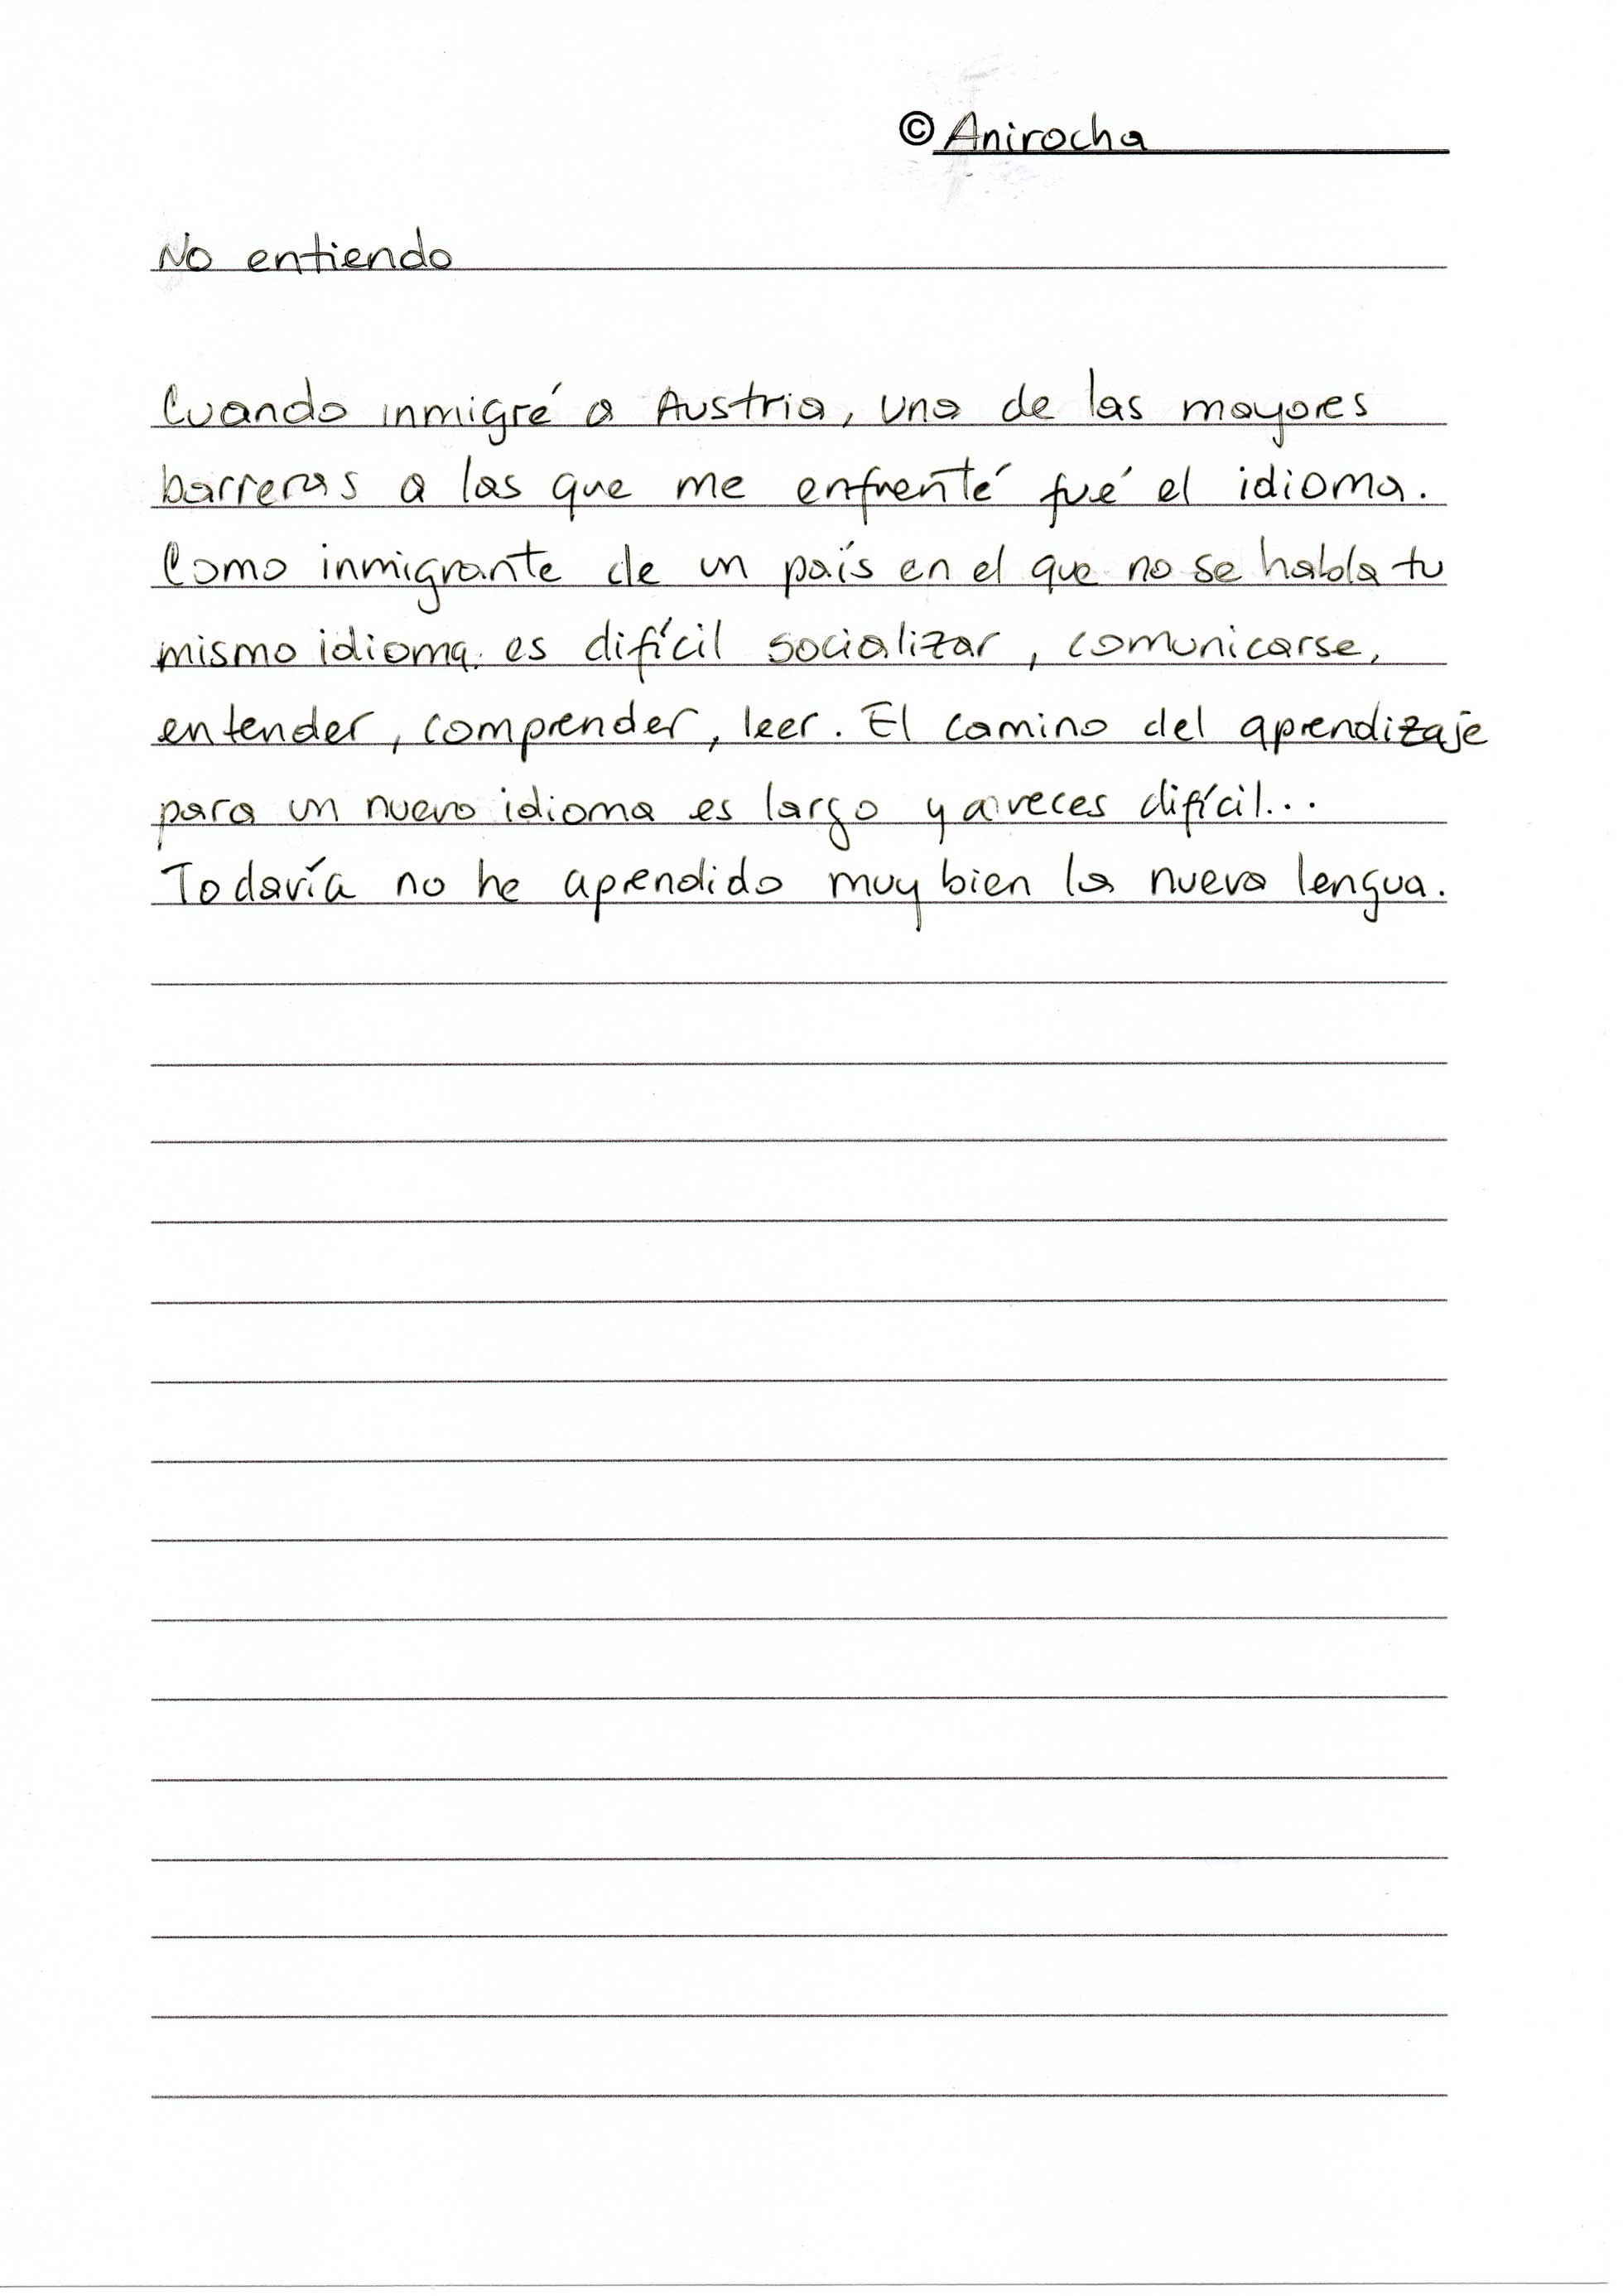 © Anirocha
No entiendo
Cuando inmigré a Austria, una de las mayores
barreras a las que me enfrenté fué el idioma.
Como inmigrante de un país en el que no se habla tu
mismo idioma. es difícil socializar, comunicarse,
entender, comprender, leer. El camino del aprendizaje
para un nuevo idioma es largo y a veces difícil...
Todavía no he aprendido muy bien la nueva lengua.